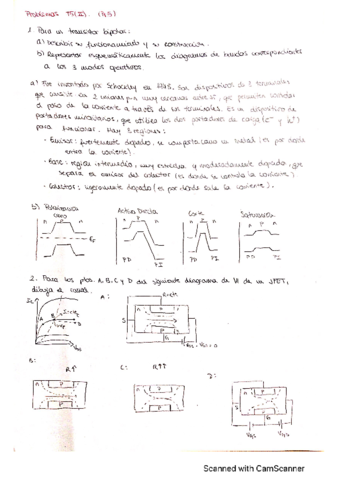 Problemas T5(II). (4,5)
1. Para un transistor bipolar:
a) Describa su funcionamiento y su construcción.
b) Representar esquemáticamente los diagramas de bandas correspondientes
a los 3 modos operativos.
a) Fue inventado por Schockley en 1948. Son dispositivos de 3 terminales
que consiste en 2 uniones p-n muy cercanas entre sí, que permiten controlar
el paso de la corriente a través de sus terminales. Es un dispositivo de
portadores minoritarios, que utiliza los dos portadores de carga (e⁻ y h⁺)
para funcionar. Hay 3 regiones:
· Emisor: fuertemente dopado, se comporta como un metal (es por donde
entra la corriente).
· Base: región intermedia, muy estrecha y moderadamente dopada, que
separa el emisor del colector (es donde se controla la corriente)
· Colector: ligeramente dopado (es por donde sale la corriente).
b) Polarización
cero
Activa Directa
Corte
Saturación
n p n
PD
PI
2. Para los ptos. A, B, C y D del siguiente diagrama de VI de un JFET,
dibuja el canal.
A:
B:
R↑
C:
R↑↑
D:
Scanned with CamScanner